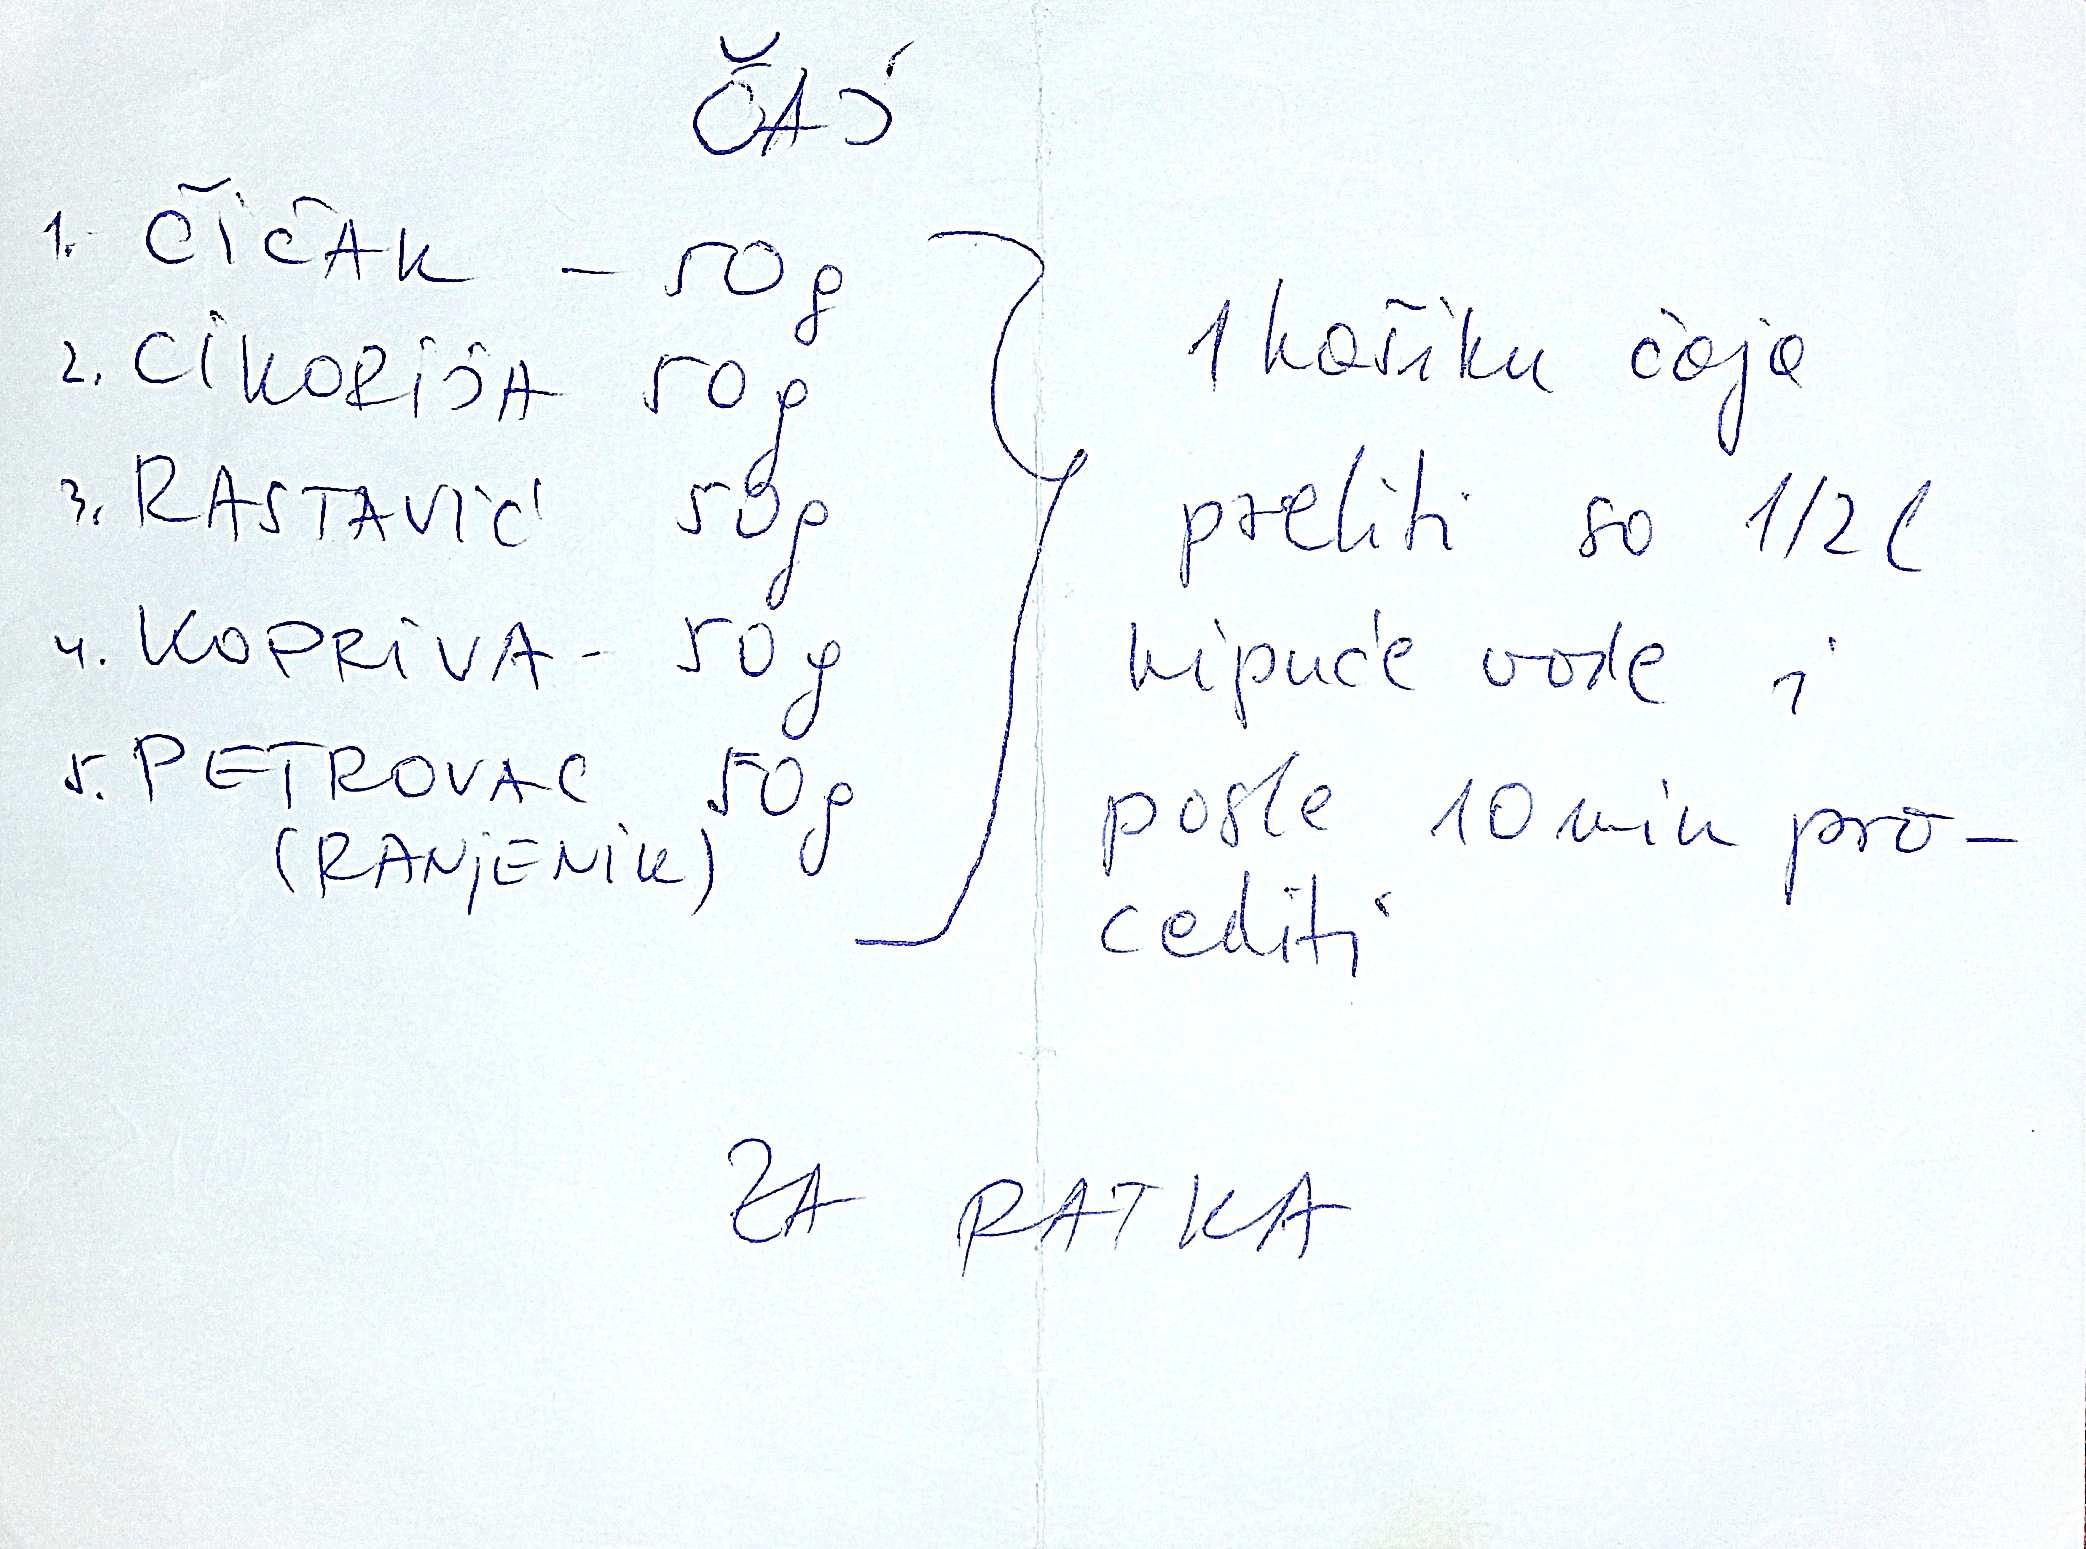 ČAJ
1. ČIČAK - 50g
2. CIKORIJA 50g
3. RASTAVIĆ 50g
4. KOPRIVA - 50g
5. PETROVAC 50g
(RANJENIK)
1 kašiku čaja
preliti sa 1/2 l
kipuće vode i
posle 10 min pro-
cediti
ZA RATKA